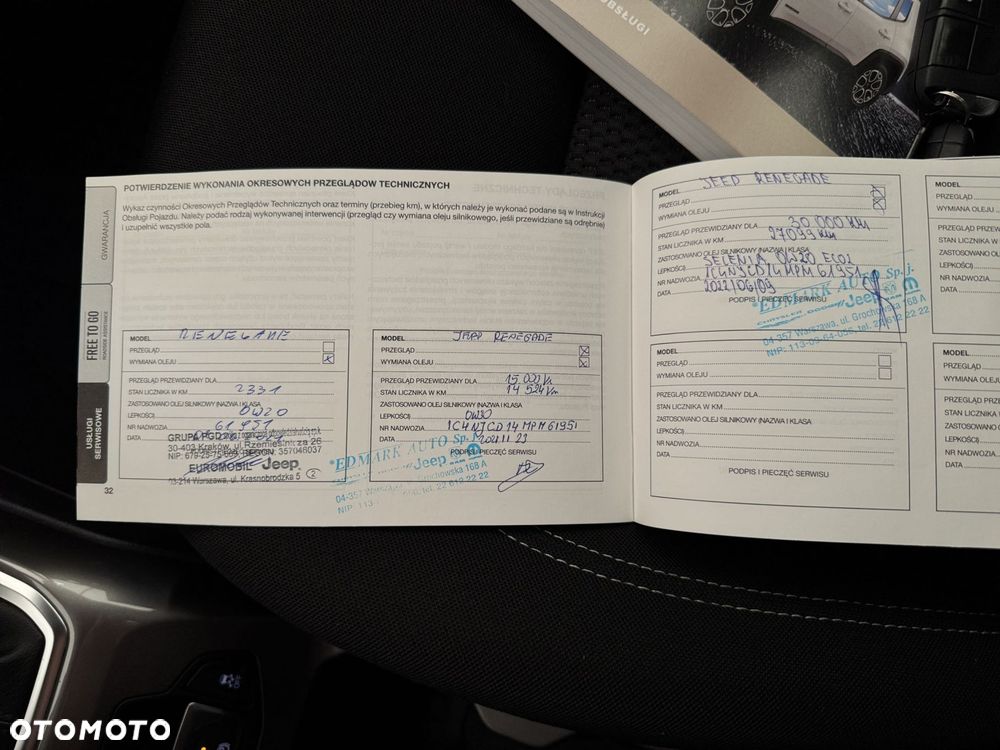 OBSŁUGI
GWARANCJA
FREE TO GO
ROADSIDE ASSISTANCE
USŁUGI
SERWISOWE
POTWIERDZENIE WYKONANIA OKRESOWYCH PRZEGLĄDÓW TECHNICZNYCH
Wykaz czynności Okresowych Przeglądów Technicznych oraz terminy (przebieg km), w których należy je wykonać podane są w Instrukcji
Obsługi Pojazdu. Należy podać rodzaj wykonywanej interwencji (przegląd czy wymiana oleju silnikowego, jeśli przewidziane są odrębnie)
i uzupełnić wszystkie pola.
MODEL RENEGADE
PRZEGLĄD
WYMIANA OLEJU X
PRZEGLĄD PRZEWIDZIANY DLA
STAN LICZNIKA W KM 2331
ZASTOSOWANO OLEJ SILNIKOWY (NAZWA I KLASA
LEPKOŚCI) 0W20
NR NADWOZIA 61951
DATA
GRUPA PGD
30-403 Kraków, ul. Rzemieślnicza 26
REGON: 357046037
EUROMOBIL Jeep 2
03-214 Warszawa, ul. Krasnobrodzka 5
32
MODEL JEEP RENEGADE
PRZEGLĄD X
WYMIANA OLEJU X
PRZEGLĄD PRZEWIDZIANY DLA 15 000 km
STAN LICZNIKA W KM 14 524 km
ZASTOSOWANO OLEJ SILNIKOWY (NAZWA I KLASA
LEPKOŚCI) 0W30
NR NADWOZIA 1C4NJCD14MPM61951
DATA 2021 11 23
PODPIS I PIECZĘĆ SERWISU
EDMARK AUTO Sp. j.
Jeep
04-357 Warszawa, ul. Grochowska 168 A
NIP: 113 tel. 22 612 22 22
MODEL JEEP RENEGADE
PRZEGLĄD X
WYMIANA OLEJU X
PRZEGLĄD PRZEWIDZIANY DLA 30 000 km
STAN LICZNIKA W KM 27099 km
ZASTOSOWANO OLEJ SILNIKOWY (NAZWA I KLASA
LEPKOŚCI) SELENIA 0W20 ECO2
NR NADWOZIA 1C4NJCD14MPM61951
DATA 2022/06/09
PODPIS I PIECZĘĆ SERWISU
EDMARK AUTO Sp. j.
CHRYSLER DODGE Jeep
04-357 Warszawa, ul. Grochowska 168 A
NIP: 113-09-64-056, tel. 22 612 22 22
MODEL
PRZEGLĄD
WYMIANA OLEJU
PRZEGLĄD PRZEWIDZIANY DLA
STAN LICZNIKA W KM
ZASTOSOWANO OLEJ SILNIKOWY (NAZWA I KLASA
LEPKOŚCI)
NR NADWOZIA
DATA
PODPIS I PIECZĘĆ SERWISU
MODEL
PRZEGLĄD
WYMIANA OLEJU
STAN LICZNIKA
LEPKOŚCI)
NR NADWOZIA
DATA
MODEL
PRZEGLĄD
WYMIANA OLEJU
LEPKOŚCI)
NR NADWOZIA
DATA
OTOMOTO